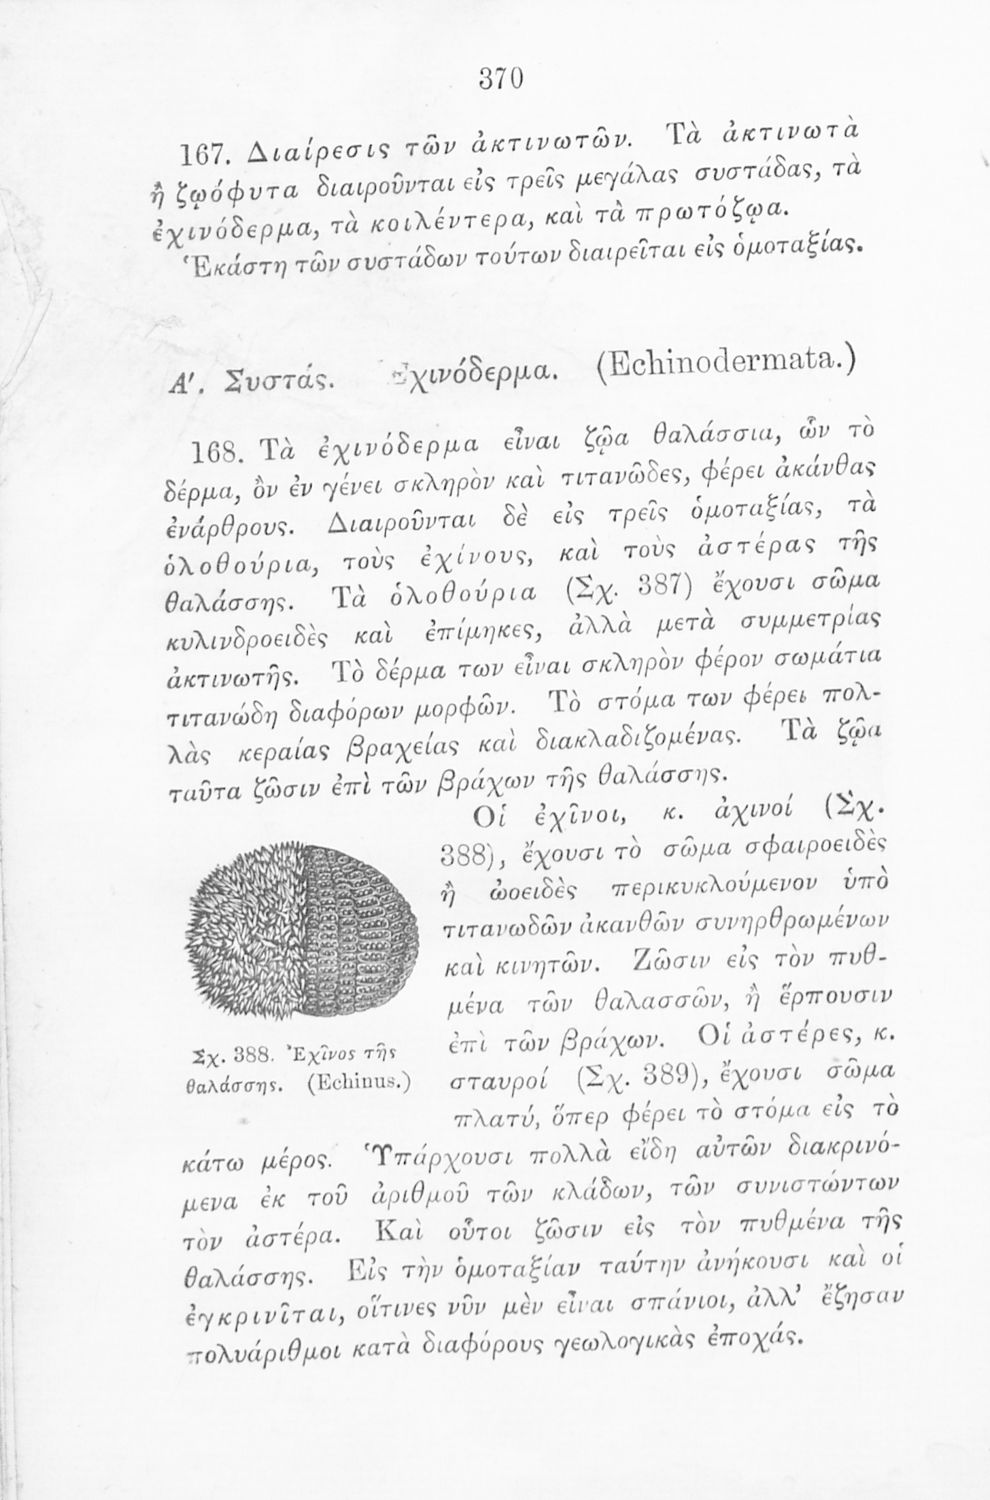 370
167. Διαίρεσις τῶν ἀκτινωτῶν. Τὰ ἀκτινωτὰ
ἢ ζῳόφυτα διαιροῦνται εἰς τρεῖς μεγάλας συστάδας, τὰ
ἐχινόδερμα, τὰ κοιλέντερα, καὶ τὰ πρωτόζῳα.
Ἑκάστη τῶν συστάδων τούτων διαιρεῖται εἰς ὁμοταξίας.
Α'. Συστάς. Ἐχινόδερμα. (Echinodermata.)
168. Τὰ ἐχινόδερμα εἶναι ζῷα θαλάσσια, ὧν τὸ
δέρμα, ὂν ἐν γένει σκληρὸν καὶ τιτανῶδες, φέρει ἀκάνθας
ἐνάρθρους. Διαιροῦνται δὲ εἰς τρεῖς ὁμοταξίας, τὰ
ὁλοθούρια, τοὺς ἐχίνους, καὶ τοὺς ἀστέρας τῆς
θαλάσσης. Τὰ ὁλοθούρια (Σχ. 387) ἔχουσι σῶμα
κυλινδροειδὲς καὶ ἐπίμηκες, ἀλλὰ μετὰ συμμετρίας
ἀκτινωτῆς. Τὸ δέρμα των εἶναι σκληρὸν φέρον σωμάτια
τιτανώδη διαφόρων μορφῶν. Τὸ στόμα των φέρει πολ-
λὰς κεραίας βραχείας καὶ διακλαδιζομένας. Τὰ ζῷα
ταῦτα ζῶσιν ἐπὶ τῶν βράχων τῆς θαλάσσης.
Οἱ ἐχῖνοι, κ. ἀχινοί (Σχ.
388), ἔχουσι τὸ σῶμα σφαιροειδὲς
ἢ ὠοειδὲς περικυκλούμενον ὑπὸ
τιτανωδῶν ἀκανθῶν συνηρθρωμένων
καὶ κινητῶν. Ζῶσιν εἰς τὸν πυθ-
μένα τῶν θαλασσῶν, ἢ ἕρπουσιν
ἐπὶ τῶν βράχων. Οἱ ἀστέρες, κ.
σταυροί (Σχ. 389), ἔχουσι σῶμα
πλατύ, ὅπερ φέρει τὸ στόμα εἰς τὸ
Σχ. 388. Ἐχῖνος τῆς
θαλάσσης. (Echinus.)
κάτω μέρος. Ὑπάρχουσι πολλὰ εἴδη αὐτῶν διακρινό-
μενα ἐκ τοῦ ἀριθμοῦ τῶν κλάδων, τῶν συνιστώντων
τὸν ἀστέρα. Καὶ οὗτοι ζῶσιν εἰς τὸν πυθμένα τῆς
θαλάσσης. Εἰς τὴν ὁμοταξίαν ταύτην ἀνήκουσι καὶ οἱ
ἐγκρινῖται, οἵτινες νῦν μὲν εἶναι σπάνιοι, ἀλλ' ἔζησαν
πολυάριθμοι κατὰ διαφόρους γεωλογικὰς ἐποχάς.